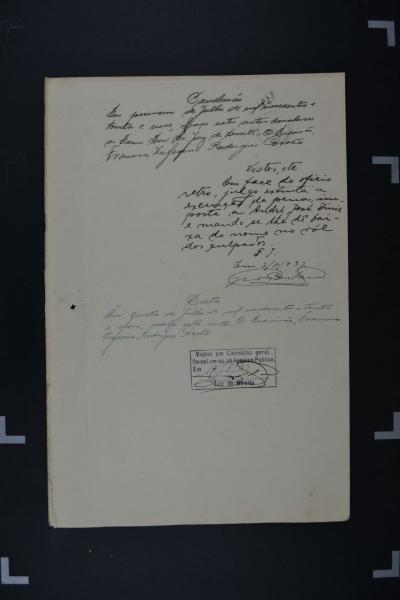 Conclusão
Em primeiro de Julho de mil novecentos e
trinta e nove, faço estes autos conclusos
ao Exmo. Snr. Dr. Juiz de Direito. O Escrivão,
Rodrigues
Vistos, etc
Em face do oficio
retro, julgo extinta a
execução da pena, im-
posta, a André José
e mando se lhe dê bai-
xa do nome no ról
dos culpados.
P. I.
Em
Data
Em quatro de Julho de mil novecentos e trinta
e nove, estes autos. O Escrivão,
Rodrigues
Vistos em Correição geral.
Remetam-se ao Arquivo Público.
Em
Juiz de Direito